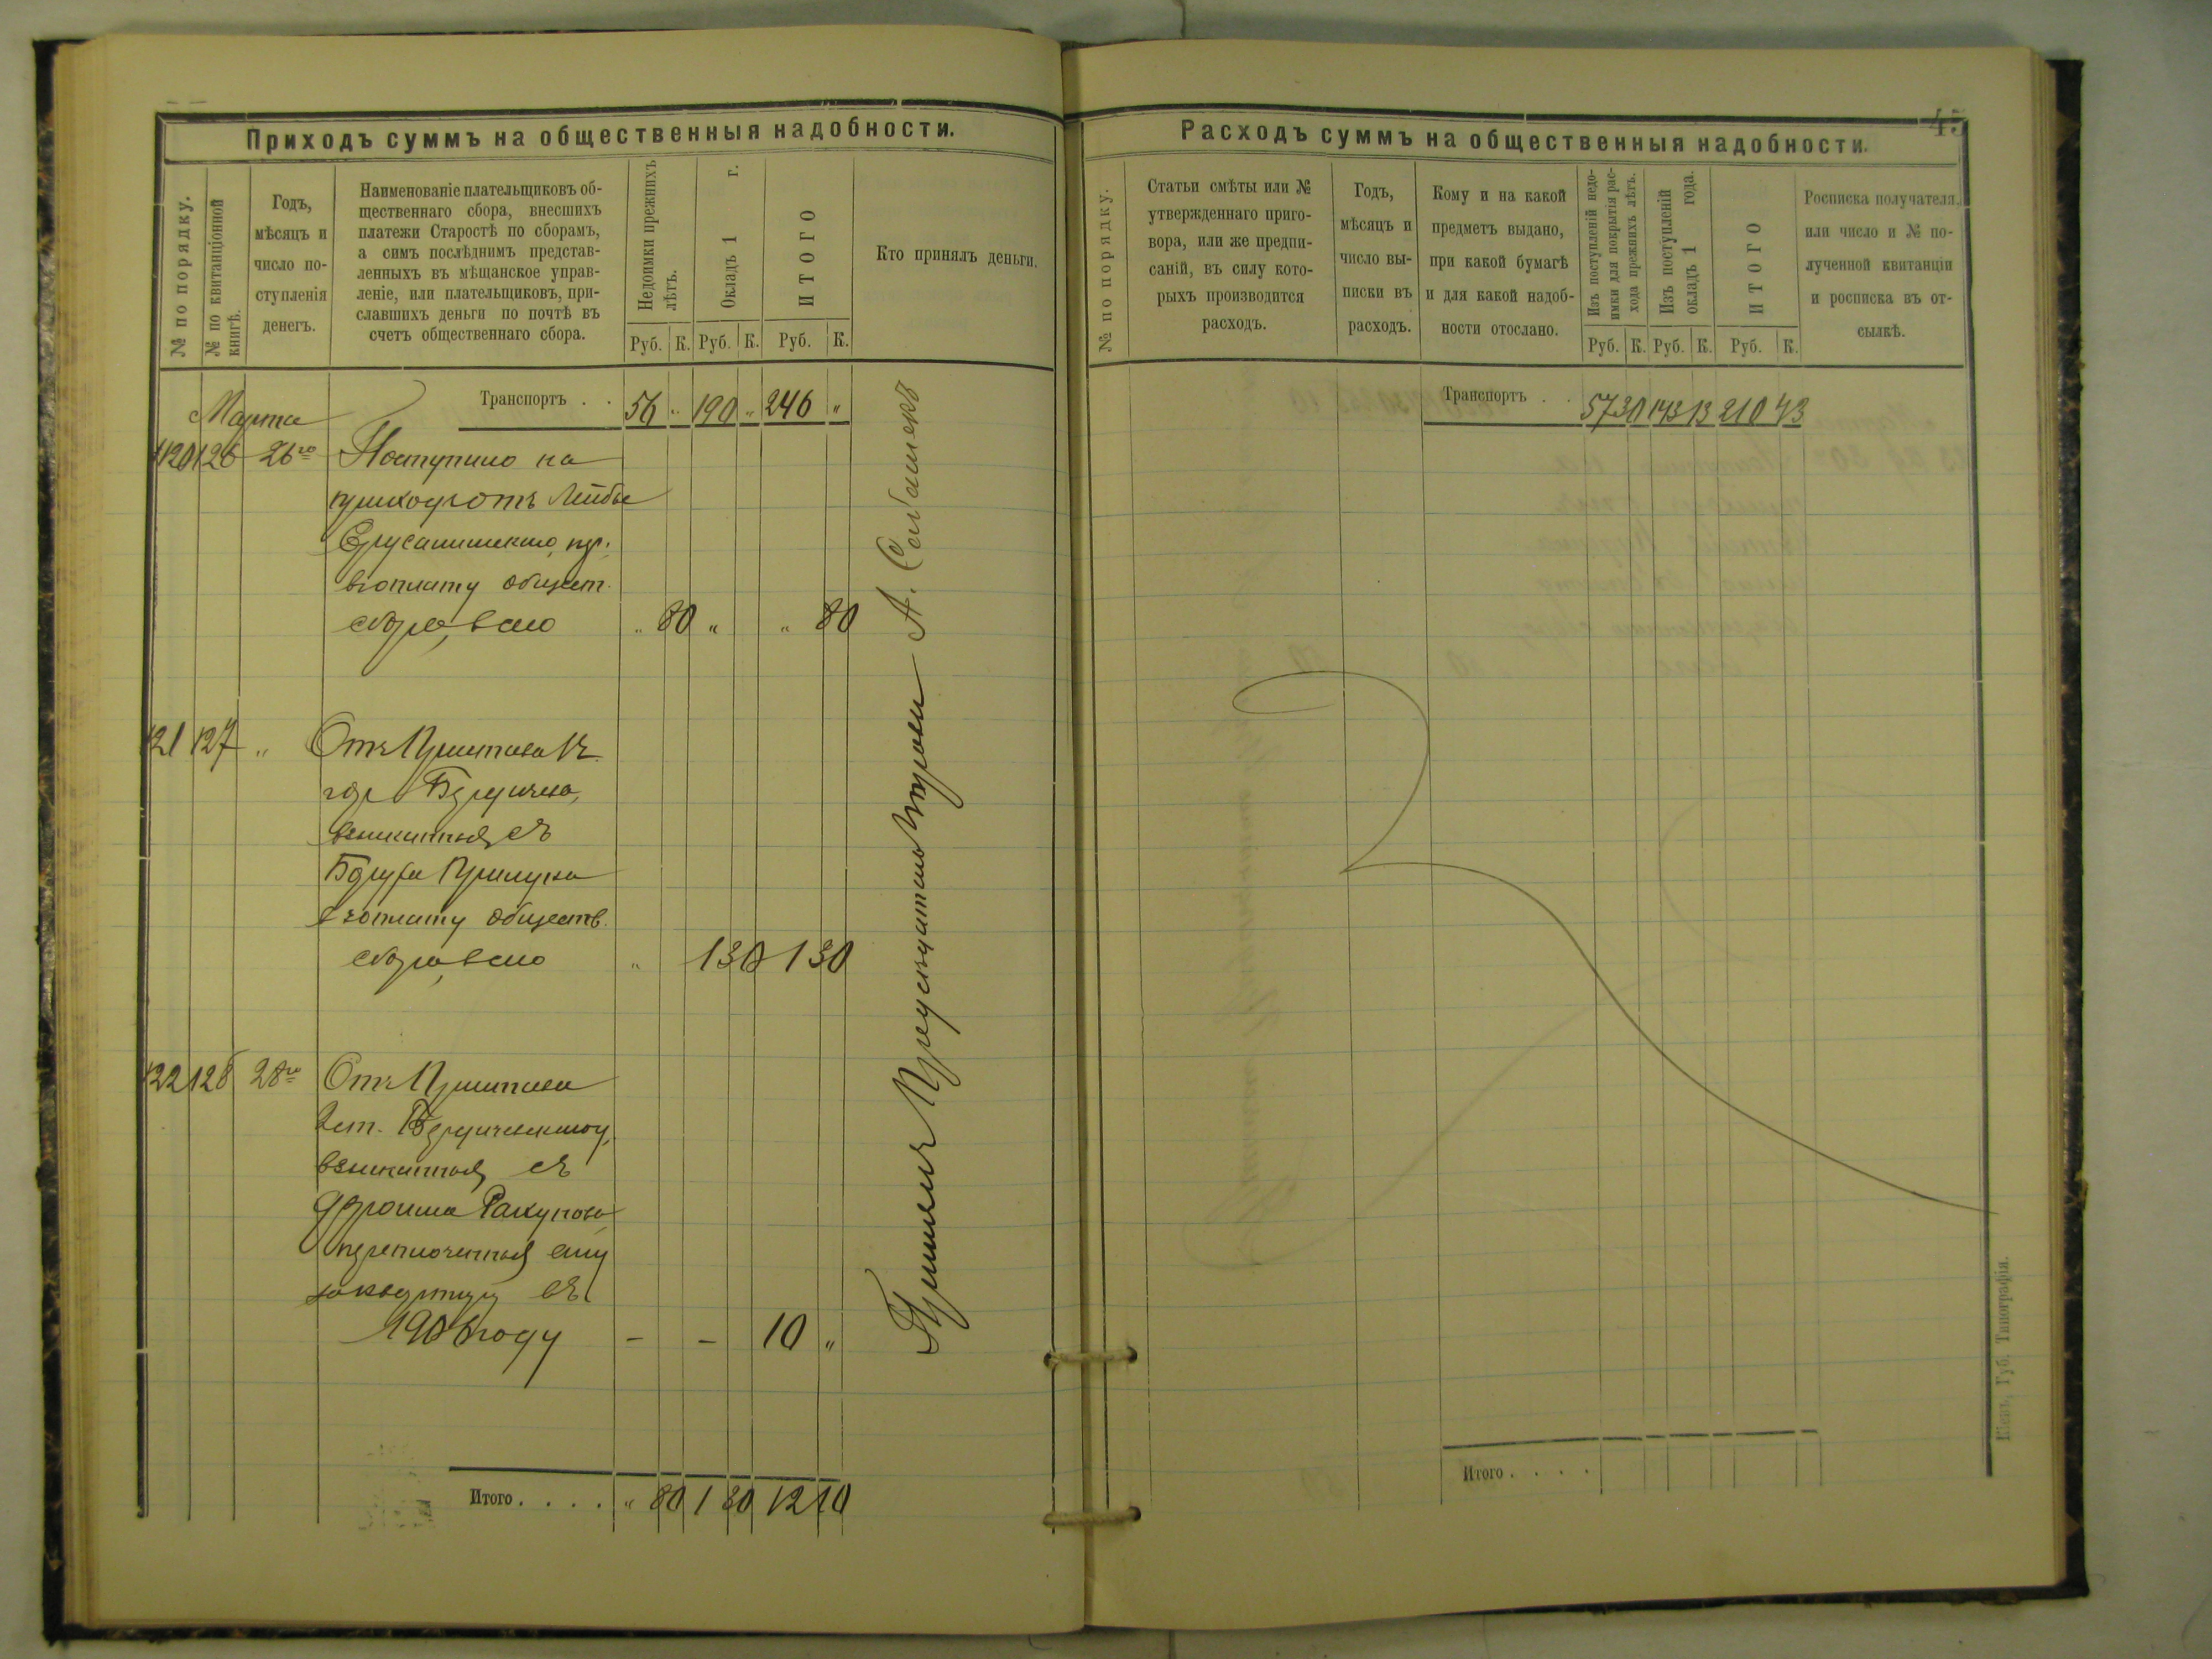 Приходъ суммъ на общественныя надобности.
№ по порядку.
№ по квитанціонной
книгѣ.
Годъ,
мѣсяцъ и
число по-
ступленія
денегъ.
Наименованіе плательщиковъ об-
щественнаго сбора, внесшихъ
платежи Старостѣ по сборамъ,
а симъ послѣднимъ представ-
ленныхъ въ мѣщанское управ-
леніе, или плательщиковъ, при-
славшихъ деньги по почтѣ въ
счетъ общественнаго сбора.
Недоимки прежнихъ
лѣтъ.
Окладъ 1 г.
ИТОГО
Руб. К. Руб. К. Руб. К.
Кто принялъ деньги.
Транспортъ . . 56 „ 190 „ 246 „
Марта
120 126 26го Поступило на
приходъ отъ Лейбы
вуплату общест.
сбора, всего „ 80 „ „ 80
121 127 „ Отъ Пристава
гор. Бердичева,
взысканныя съ
вуплату обществ.
сбора, всего „ 1 30 1 30
122 128 28го Отъ Пристава
2 ст. Бердичевскаго у.
взысканныя съ
въ
1906 году – – 10 „
Итого . . . . „ 80 1 30 12 10
Принялъ Предсѣдатель Управы А.
45
Расходъ суммъ на общественныя надобности.
№ по порядку.
Статьи смѣты или №
утвержденнаго приго-
вора, или же предпи-
саній, въ силу кото-
рыхъ производится
расходъ.
Годъ,
мѣсяцъ и
число вы-
писки въ
расходъ.
Кому и на какой
предметъ выдано,
при какой бумагѣ
и для какой надоб-
ности отослано.
Изъ поступленій недо-
имки для покрытія рас-
хода прежнихъ лѣтъ.
Изъ поступленій
окладъ 1 года.
ИТОГО
Руб. К. Руб. К. Руб. К.
Росписка получателя,
или число и № по-
лученной квитанціи
и росписка въ от-
сылкѣ.
Транспортъ . . 57 30 143 13 210 43
Итого . . . .
Кіевъ, Губ. Типографія.